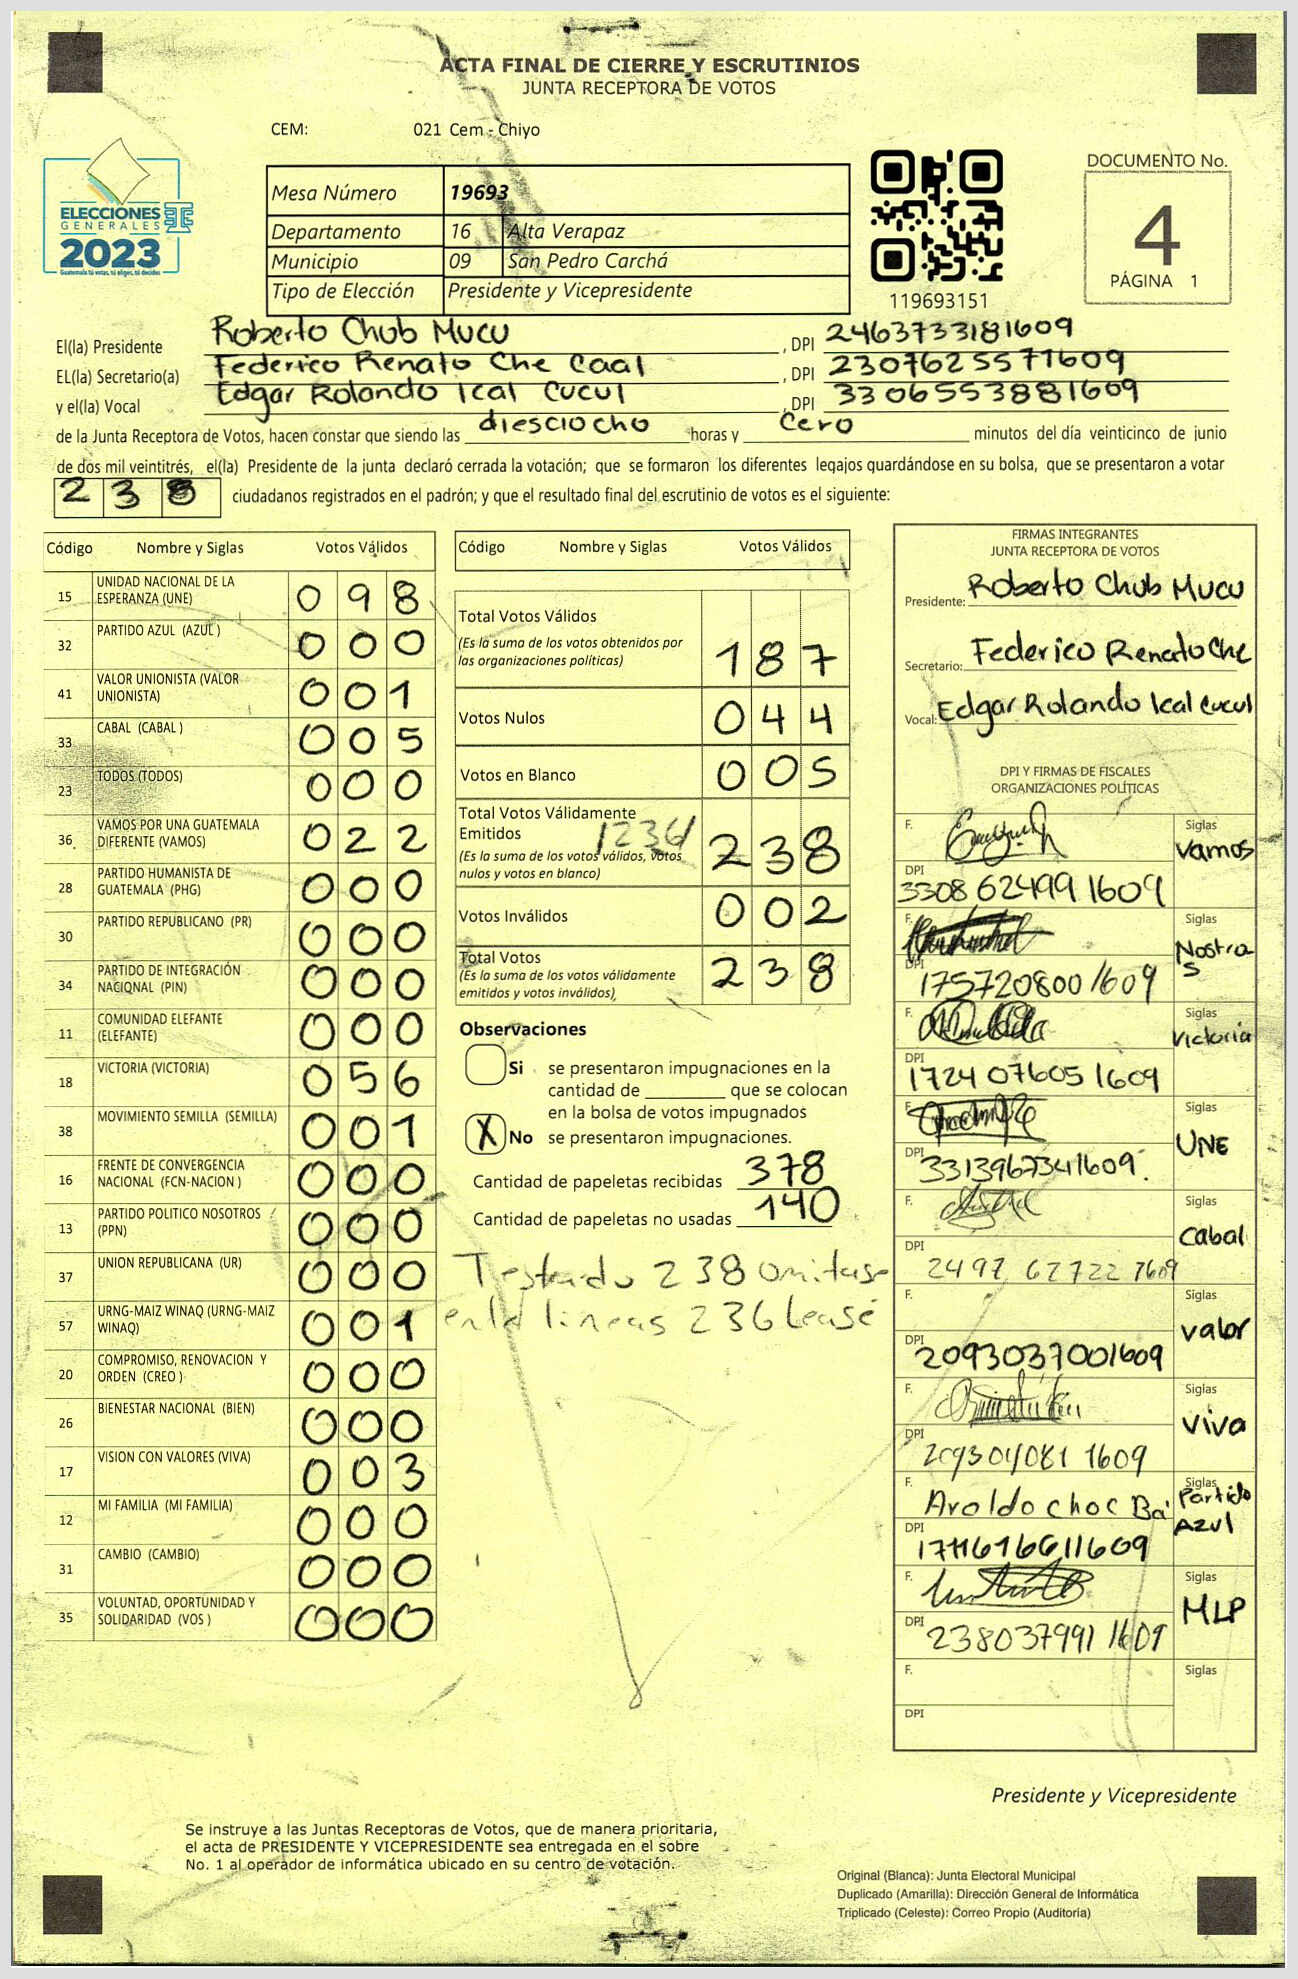 ACTA FINAL DE CIERRE Y ESCRUTINIOS
JUNTA RECEPTORA DE VOTOS
CEM: 021 Cem - Chiyo
ELECCIONES
GENERALES
2023
Guatemala tú votas, tú eliges, tú decides
Mesa Número 19693
Departamento 16 Alta Verapaz
Municipio 09 San Pedro Carchá
Tipo de Elección Presidente y Vicepresidente
119693151
DOCUMENTO No.
4
PÁGINA 1
El(la) Presidente Roberto Chub Mucu, DPI 2463733181609
EL(la) Secretario(a) Federico Renato Che Caal, DPI 2307625571609
y el(la) Vocal Edgar Rolando Ical Cucul, DPI 3306553881609
de la Junta Receptora de Votos, hacen constar que siendo las diesciocho horas y cero minutos del día veinticinco de junio
de dos mil veintitrés, el(la) Presidente de la junta declaró cerrada la votación; que se formaron los diferentes legajos guardándose en su bolsa, que se presentaron a votar
238 ciudadanos registrados en el padrón; y que el resultado final del escrutinio de votos es el siguiente:
Código Nombre y Siglas Votos Válidos
15 UNIDAD NACIONAL DE LA ESPERANZA (UNE) 098
32 PARTIDO AZUL (AZUL ) 000
41 VALOR UNIONISTA (VALOR UNIONISTA) 001
33 CABAL (CABAL ) 005
23 TODOS (TODOS) 000
36 VAMOS POR UNA GUATEMALA DIFERENTE (VAMOS) 022
28 PARTIDO HUMANISTA DE GUATEMALA (PHG) 000
30 PARTIDO REPUBLICANO (PR) 000
34 PARTIDO DE INTEGRACIÓN NACIONAL (PIN) 000
11 COMUNIDAD ELEFANTE (ELEFANTE) 000
18 VICTORIA (VICTORIA) 056
38 MOVIMIENTO SEMILLA (SEMILLA) 001
16 FRENTE DE CONVERGENCIA NACIONAL (FCN-NACION ) 000
13 PARTIDO POLITICO NOSOTROS (PPN) 000
37 UNION REPUBLICANA (UR) 000
57 URNG-MAIZ WINAQ (URNG-MAIZ WINAQ) 001
20 COMPROMISO, RENOVACION Y ORDEN (CREO ) 000
26 BIENESTAR NACIONAL (BIEN) 000
17 VISION CON VALORES (VIVA) 003
12 MI FAMILIA (MI FAMILIA) 000
31 CAMBIO (CAMBIO) 000
35 VOLUNTAD, OPORTUNIDAD Y SOLIDARIDAD (VOS ) 000
Código Nombre y Siglas Votos Válidos
Total Votos Válidos
(Es la suma de los votos obtenidos por
las organizaciones políticas) 187
Votos Nulos 044
Votos en Blanco 005
Total Votos Válidamente
Emitidos /236/
(Es la suma de los votos válidos, votos
nulos y votos en blanco) 238
Votos Inválidos 002
Total Votos
(Es la suma de los votos válidamente
emitidos y votos inválidos) 238
Observaciones
Si se presentaron impugnaciones en la
cantidad de ________ que se colocan
en la bolsa de votos impugnados
X No se presentaron impugnaciones.
Cantidad de papeletas recibidas 378
Cantidad de papeletas no usadas 140
Testado 238 omitase
en la lineas 236 Lease
FIRMAS INTEGRANTES
JUNTA RECEPTORA DE VOTOS
Presidente: Roberto Chub Mucu
Secretario: Federico Renato Che
Vocal: Edgar Rolando Ical Cucul
DPI Y FIRMAS DE FISCALES
ORGANIZACIONES POLÍTICAS
F. Siglas Vamos
DPI 3308 62499 1609
F. Siglas Nostras
DPI 1757208001609
F. Siglas Victoria
DPI 1724 07605 1609
F. Siglas UNE
DPI 3313967341609
F. Siglas Cabal
DPI 2497 67722 1609
F. Siglas valor
DPI 2093037001609
F. Siglas viva
DPI
F. Aroldo choc Ba Siglas Partido Azul
DPI
F. Siglas MLP
DPI 238037991 1609
F. Siglas
DPI
Presidente y Vicepresidente
Se instruye a las Juntas Receptoras de Votos, que de manera prioritaria,
el acta de PRESIDENTE Y VICEPRESIDENTE sea entregada en el sobre
No. 1 al operador de informática ubicado en su centro de votación.
Original (Blanca): Junta Electoral Municipal
Duplicado (Amarilla): Dirección General de Informática
Triplicado (Celeste): Correo Propio (Auditoría)